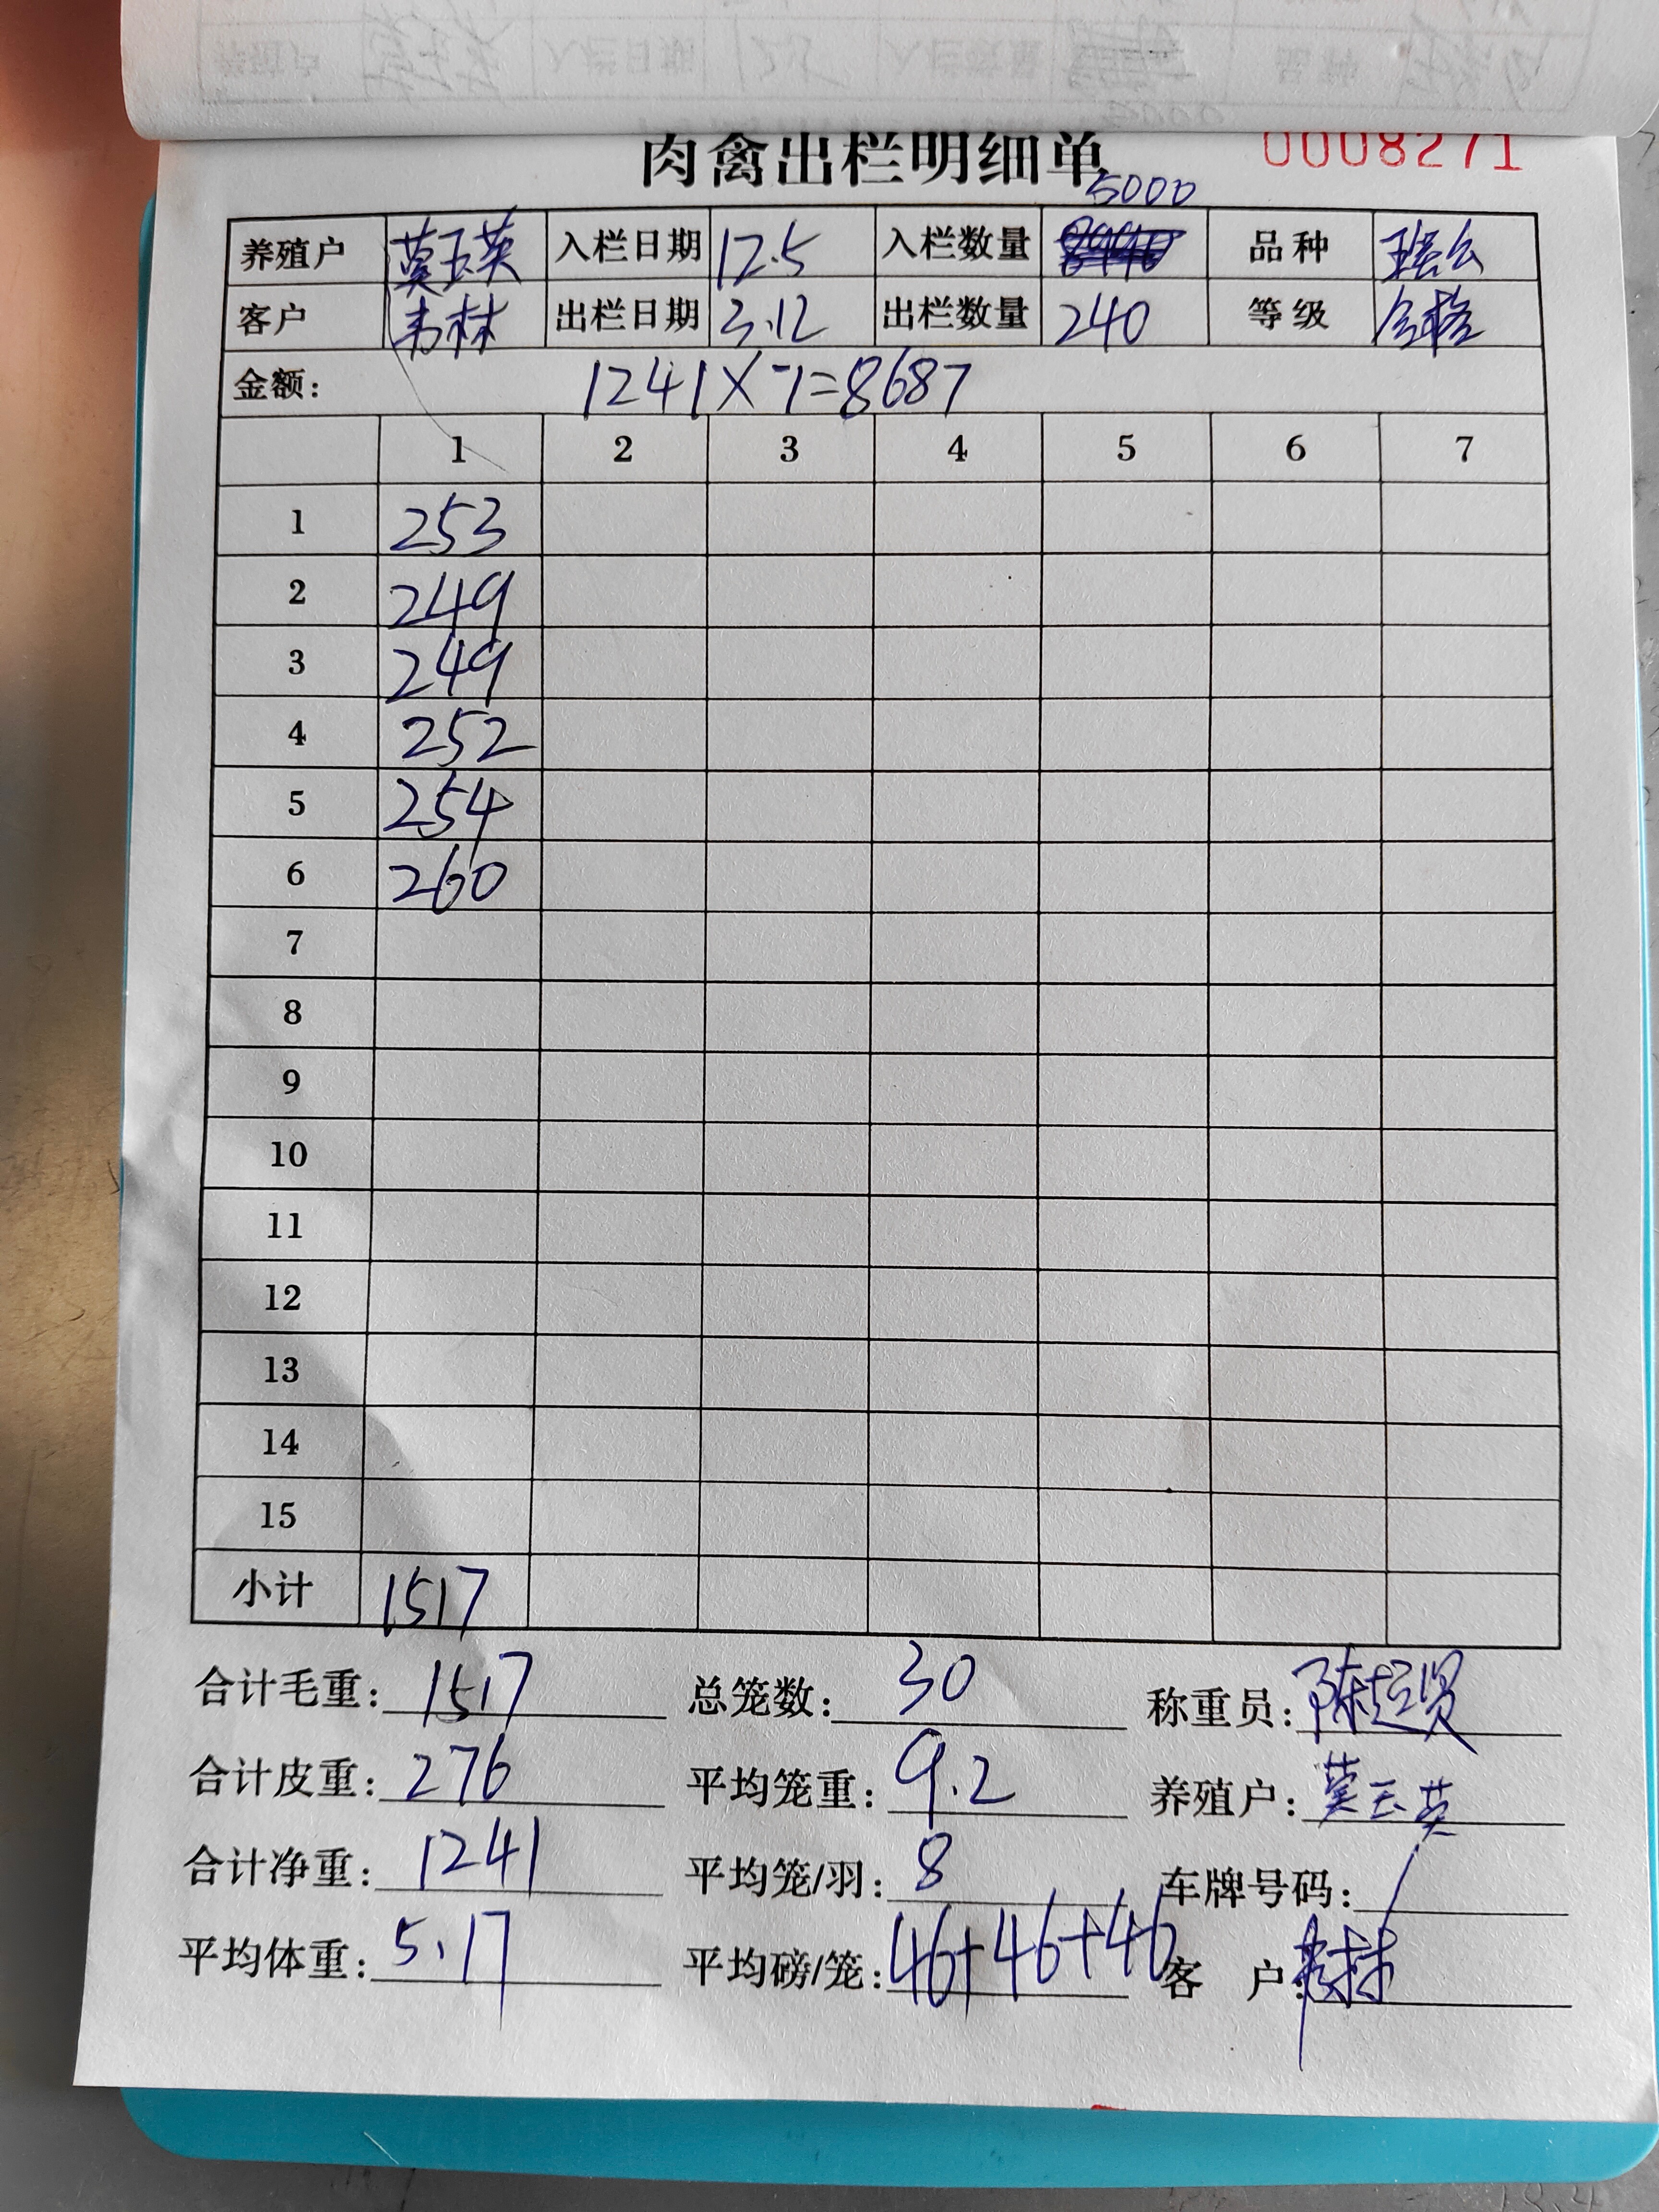 肉禽出栏明细单 0008271
5000
养殖户 莫玉英 入栏日期 12.5 入栏数量 品种
客户 韦林 出栏日期 3.12 出栏数量 240 等级 合格
金额: 1241×7=8687
1 2 3 4 5 6 7
1 253
2 249
3 249
4 252
5 254
6 260
7
8
9
10
11
12
13
14
15
小计 1517
合计毛重: 1517 总笼数: 30 称重员: 陈超贤
合计皮重: 276 平均笼重: 9.2 养殖户: 莫玉英
合计净重: 1241 平均笼/羽: 8 车牌号码: /
平均体重: 5.17 平均磅/笼: 46+46+46 客 户: 韦林